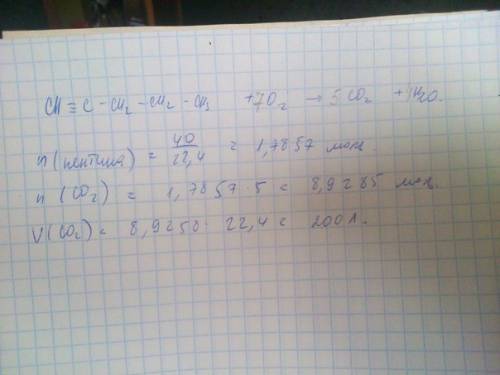 CH ≡ C - CH₂ - CH₂ - CH₃ + 7O₂ → 5CO₂ + 4H₂O.
n (пентина) = 40/22,4 = 1,7857 моль
n (CO₂) = 1,7857 · 5 = 8,9285 моль.
V (CO₂) = 8,9250 · 22,4 = 200 л.